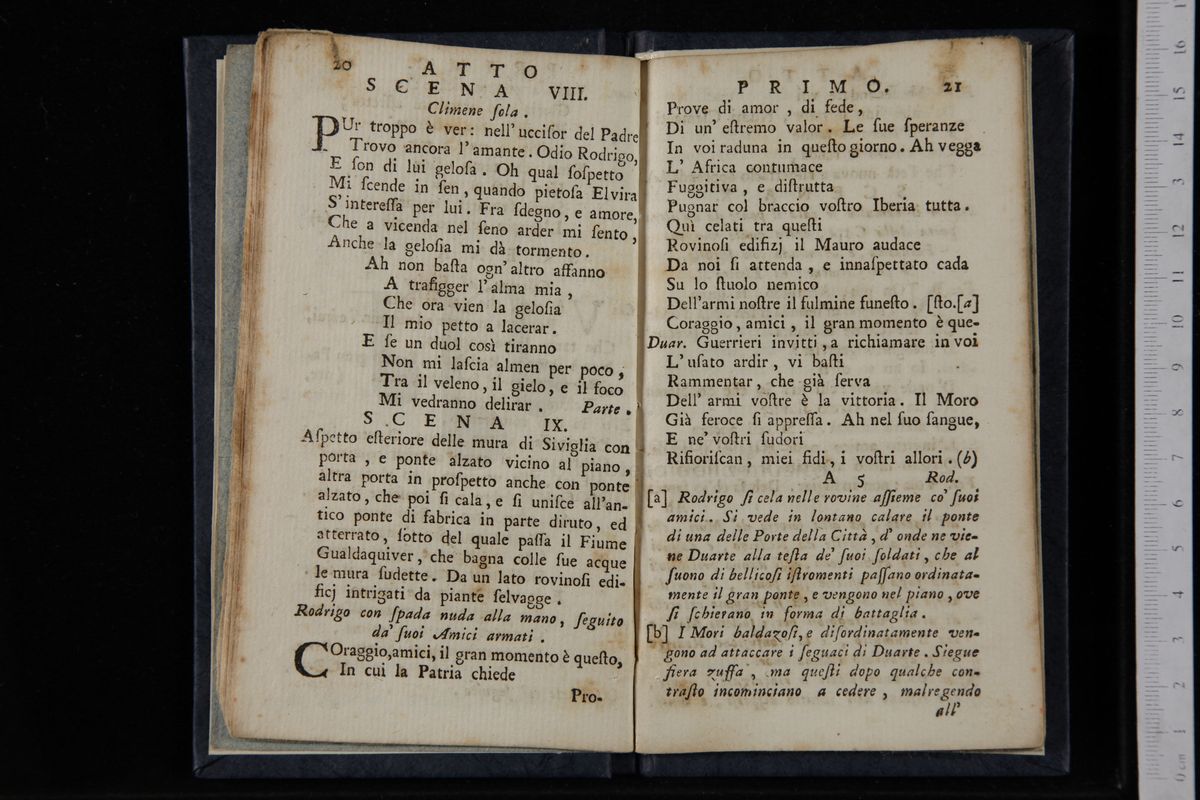 20
ATTO
SCENA VIII.
Climene ſola.
PUr troppo è ver: nell'ucciſor del Padre
Trovo ancora l'amante. Odio Rodrigo,
E ſon di lui geloſa. Oh qual ſoſpetto
Mi ſcende in ſen, quando pietoſa Elvira
S'intereſſa per lui. Fra ſdegno, e amore,
Che a vicenda nel ſeno arder mi ſento,
Anche la geloſia mi dà tormento.
Ah non baſta ogn'altro affanno
A trafigger l'alma mia,
Che ora vien la geloſia
Il mio petto a lacerar.
E ſe un duol così tiranno
Non mi laſcia almen per poco,
Tra il veleno, il gielo, e il foco
Mi vedranno delirar. Parte.
SCENA IX.
Aſpetto eſteriore delle mura di Siviglia con
porta, e ponte alzato vicino al piano,
altra porta in proſpetto anche con ponte
alzato, che poi ſi cala, e ſi uniſce all'an-
tico ponte di fabrica in parte diruto, ed
atterrato, ſotto del quale paſſa il Fiume
Gualdaquiver, che bagna colle ſue acque
le mura ſudette. Da un lato rovinoſi edi-
ficj intrigati da piante ſelvagge.
Rodrigo con ſpada nuda alla mano, ſeguito
da' ſuoi Amici armati.
COraggio, amici, il gran momento è queſto,
In cui la Patria chiede
Pro-
PRIMO. 21
Prove di amor, di fede,
Di un' eſtremo valor. Le ſue ſperanze
In voi raduna in queſto giorno. Ah vegga
L' Africa contumace
Fuggitiva, e diſtrutta
Pugnar col braccio voſtro Iberia tutta.
Quì celati tra queſti
Rovinoſi edifizj il Mauro audace
Da noi ſi attenda, e innaſpettato cada
Su lo ſtuolo nemico
Dell'armi noſtre il fulmine funeſto. [ſto.[a]
Coraggio, amici, il gran momento è que-
Duar. Guerrieri invitti, a richiamare in voi
L' uſato ardir, vi baſti
Rammentar, che già ſerva
Dell' armi voſtre è la vittoria. Il Moro
Già feroce ſi appreſſa. Ah nel ſuo ſangue,
E ne' voſtri ſudori
Rifioriſcan, miei fidi, i voſtri allori. (b)
A 5 Rod.
[a] Rodrigo ſi cela nelle rovine aſſieme co' ſuoi
amici. Si vede in lontano calare il ponte
di una delle Porte della Città, d' onde ne vie-
ne Duarte alla teſta de' ſuoi ſoldati, che al
ſuono di bellicoſi iſtromenti paſſano ordinata-
mente il gran ponte, e vengono nel piano, ove
ſi ſchierano in forma di battaglia.
[b] I Mori baldazoſi, e diſordinatamente ven-
gono ad attaccare i ſeguaci di Duarte. Siegue
fiera zuffa, ma queſti dopo qualche con-
traſto incominciano a cedere, malregendo
all'
0 cm 1 2 3 4 5 6 7 8 9 10 11 12 13 14 15 16